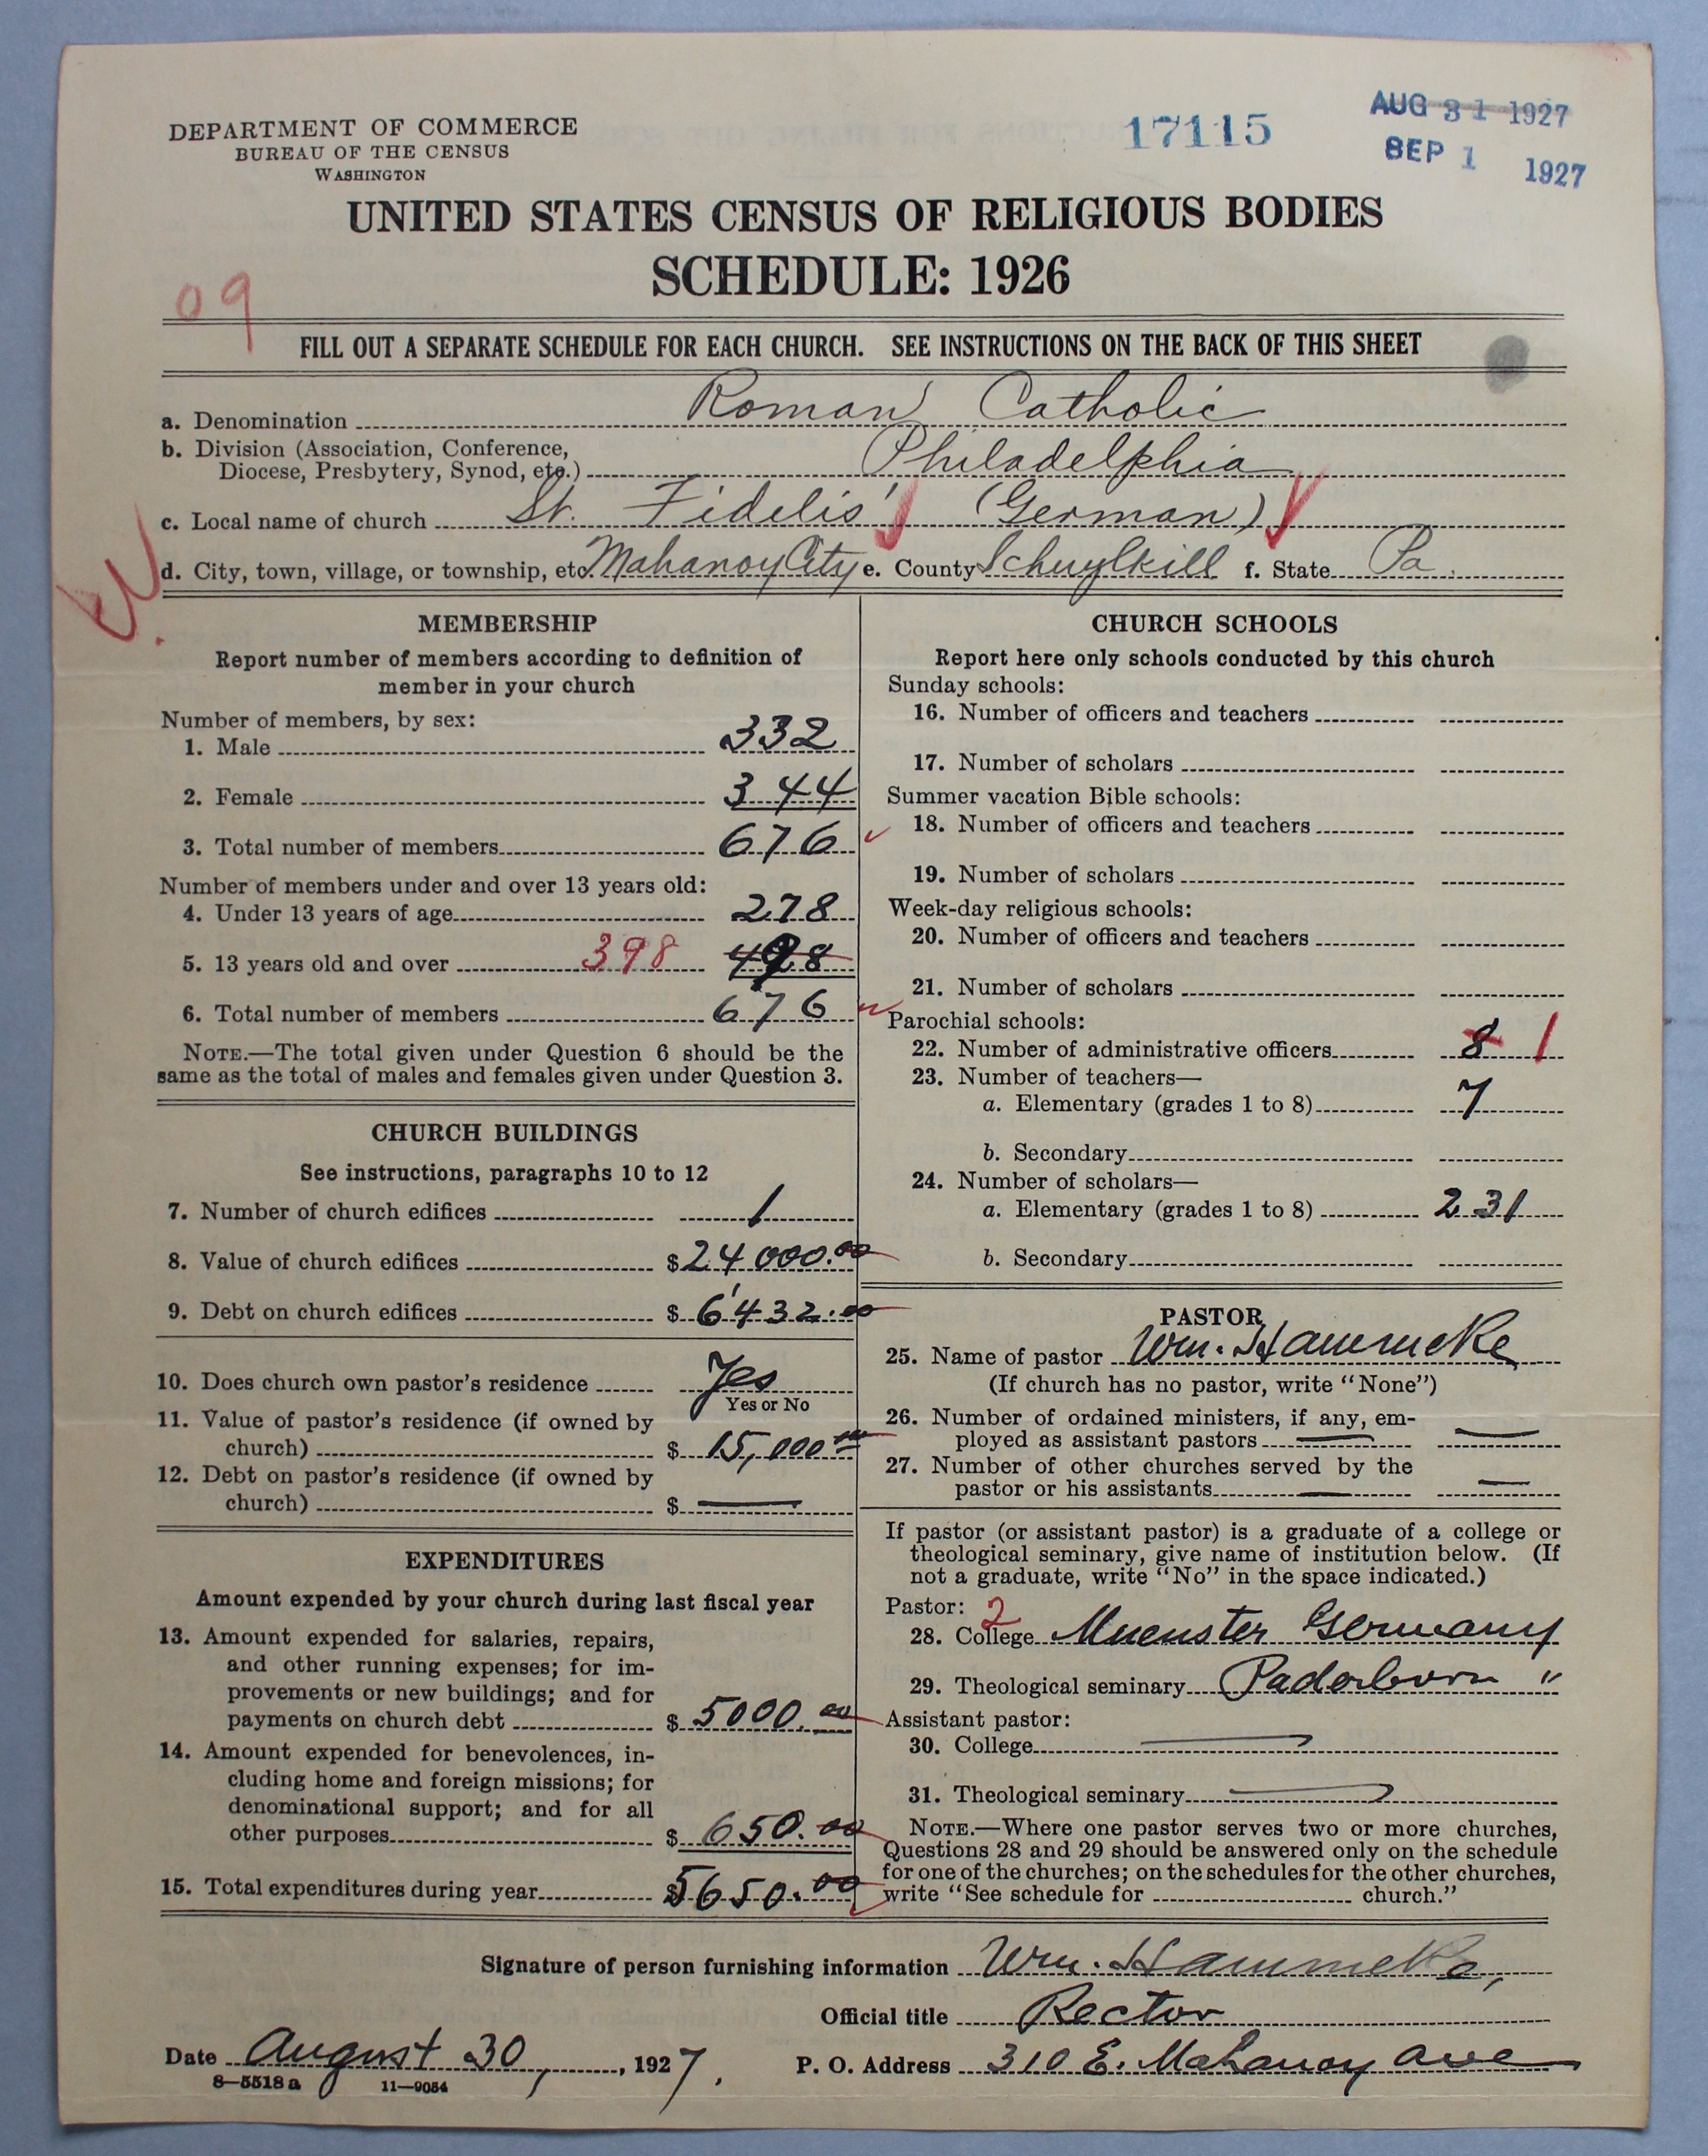 DEPARTMENT OF COMMERCE
BUREAU OF THE CENSUS
WASHINGTON
17115
AUG 31 1927
SEP 1 1927
UNITED STATES CENSUS OF RELIGIOUS BODIES
SCHEDULE: 1926
09
FILL OUT A SEPARATE SCHEDULE FOR EACH CHURCH. SEE INSTRUCTIONS ON THE BACK OF THIS SHEET
a. Denomination Roman Catholic
b. Division (Association, Conference,
Diocese, Presbytery, Synod, etc.) Philadelphia
c. Local name of church St. Fidelis' (German)
d. City, town, village, or township, etc. Mahanoy City e. County Schuylkill f. State Pa.
MEMBERSHIP
Report number of members according to definition of
member in your church
Number of members, by sex:
1. Male 332
2. Female 344
3. Total number of members 676
Number of members under and over 13 years old:
4. Under 13 years of age 278
5. 13 years old and over 398 498
6. Total number of members 676
NOTE.—The total given under Question 6 should be the
same as the total of males and females given under Question 3.
CHURCH BUILDINGS
See instructions, paragraphs 10 to 12
7. Number of church edifices 1
8. Value of church edifices $24000.00
9. Debt on church edifices $6'432.00
10. Does church own pastor's residence Yes
Yes or No
11. Value of pastor's residence (if owned by
church) $15,000.00
12. Debt on pastor's residence (if owned by
church) $ —
EXPENDITURES
Amount expended by your church during last fiscal year
13. Amount expended for salaries, repairs,
and other running expenses; for im-
provements or new buildings; and for
payments on church debt $5000.00
14. Amount expended for benevolences, in-
cluding home and foreign missions; for
denominational support; and for all
other purposes $650.00
15. Total expenditures during year $5650.00
CHURCH SCHOOLS
Report here only schools conducted by this church
Sunday schools:
16. Number of officers and teachers
17. Number of scholars
Summer vacation Bible schools:
18. Number of officers and teachers
19. Number of scholars
Week-day religious schools:
20. Number of officers and teachers
21. Number of scholars
Parochial schools:
22. Number of administrative officers 8 1
23. Number of teachers—
a. Elementary (grades 1 to 8) 7
b. Secondary
24. Number of scholars—
a. Elementary (grades 1 to 8) 231
b. Secondary
PASTOR
25. Name of pastor Wm. Hammeke
(If church has no pastor, write "None")
26. Number of ordained ministers, if any, em-
ployed as assistant pastors — —
27. Number of other churches served by the
pastor or his assistants — —
If pastor (or assistant pastor) is a graduate of a college or
theological seminary, give name of institution below. (If
not a graduate, write "No" in the space indicated.)
Pastor: 2
28. College Muenster Germany
29. Theological seminary Paderborn "
Assistant pastor:
30. College —
31. Theological seminary —
NOTE.—Where one pastor serves two or more churches,
Questions 28 and 29 should be answered only on the schedule
for one of the churches; on the schedules for the other churches,
write "See schedule for church."
Signature of person furnishing information Wm. Hammeke,
Official title Rector
Date August 30, 1927. P. O. Address 310 E. Mahanoy Ave
8—5518a 11—9054